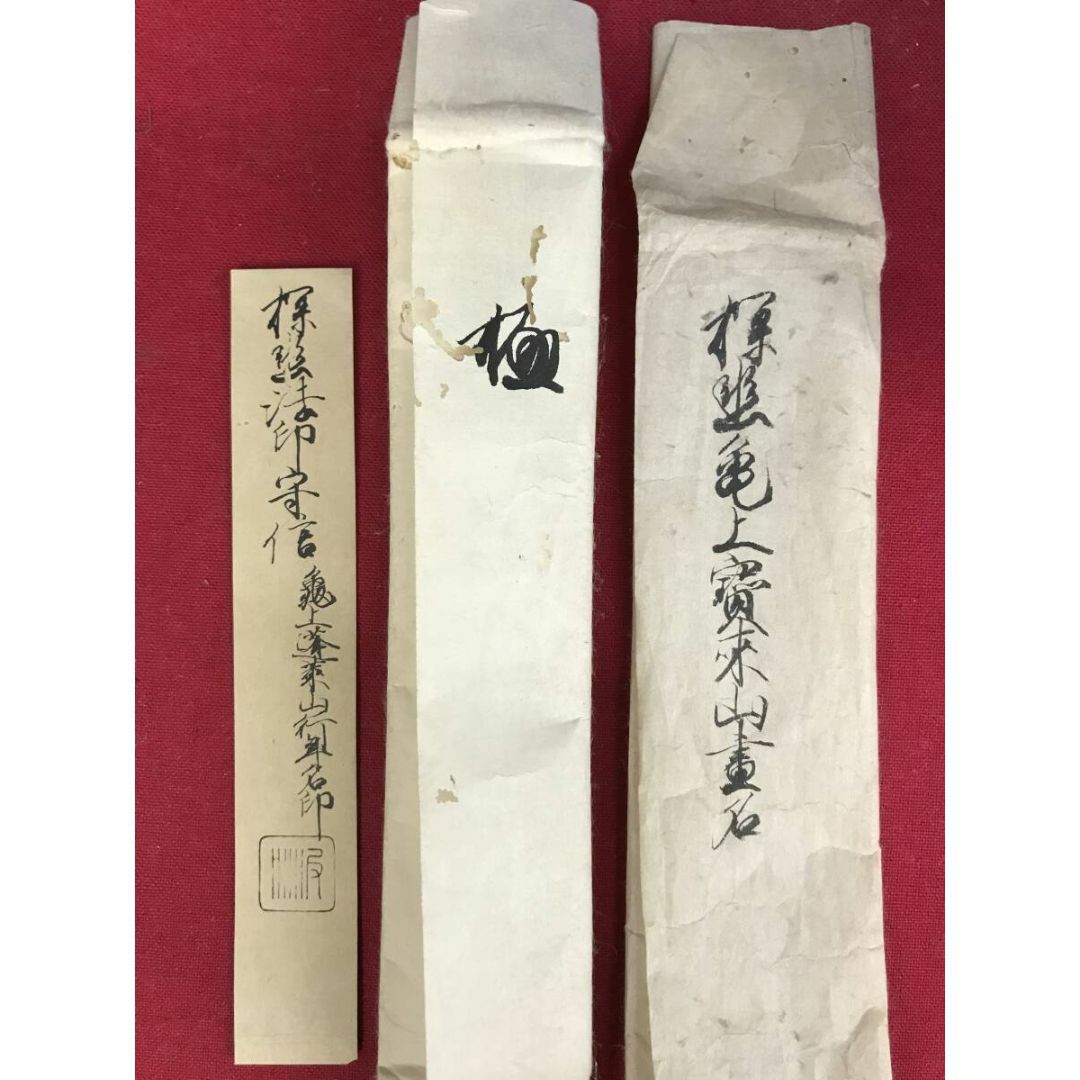 探幽亀上寶来山畫名
極
探幽法印守信
龜上蓬莱山行年名印